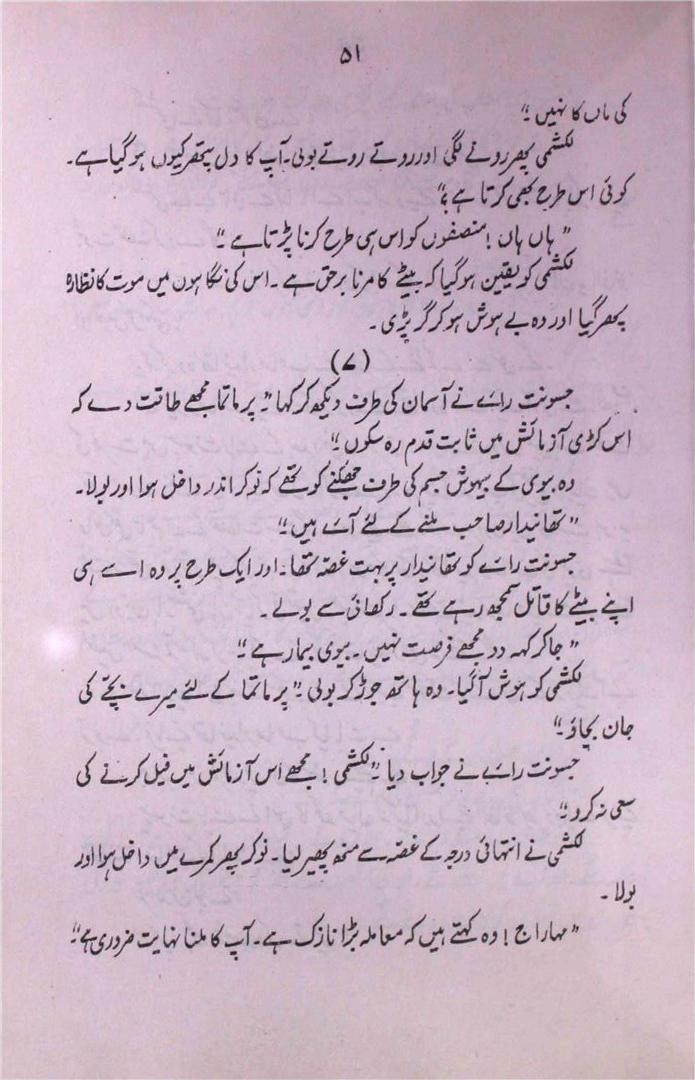 ۵۱
کی ماں کا نہیں۔"
لکشمی پھر رونے لگی اور روتے روتے بولی۔ آپ کا دل پتھر کیوں ہو گیا ہے۔
کوئی اس طرح بھی کرتا ہے؟"
"ہاں ہاں! منصفوں کو اس ہی طرح کرنا پڑتا ہے۔"
لکشمی کو یقین ہو گیا کہ بیٹے کا مرنا برحق ہے۔ اس کی نگاہوں میں موت کا نظارہ
پھر گیا اور وہ بے ہوش ہو کر گر پڑی۔
(۷)
جسونت رائے نے آسمان کی طرف دیکھ کر کہا "پرماتما مجھے طاقت دے کہ
اس کڑی آزمائش میں ثابت قدم رہ سکوں۔"
وہ بیوی کے بیہوش جسم کی طرف جھکنے کو تھے کہ نوکر اندر داخل ہوا اور بولا۔
"تھانیدار صاحب ملنے کے لئے آئے ہیں۔"
جسونت رائے کو تھانیدار پر بہت غصہ تھا۔ اور ایک طرح پر وہ اسے ہی
اپنے بیٹے کا قاتل سمجھ رہے تھے۔ رکھائی سے بولے۔
"جا کر کہہ دو مجھے فرصت نہیں۔ بیوی بیمار ہے۔"
لکشمی کو ہوش آ گیا۔ وہ ہاتھ جوڑ کر بولی۔ "پرماتما کے لئے میرے بچے کی
جان بچاؤ۔"
جسونت رائے نے جواب دیا۔ "لکشمی! مجھے اس آزمائش میں فیل کرنے کی
سعی نہ کرو۔"
لکشمی نے انتہائی درجہ کے غصہ سے منھ پھیر لیا۔ نوکر پھر کمرے میں داخل ہوا اور
بولا۔
"مہاراج! وہ کہتے ہیں کہ معاملہ بڑا نازک ہے۔ آپ کا ملنا نہایت ضروری ہے۔"